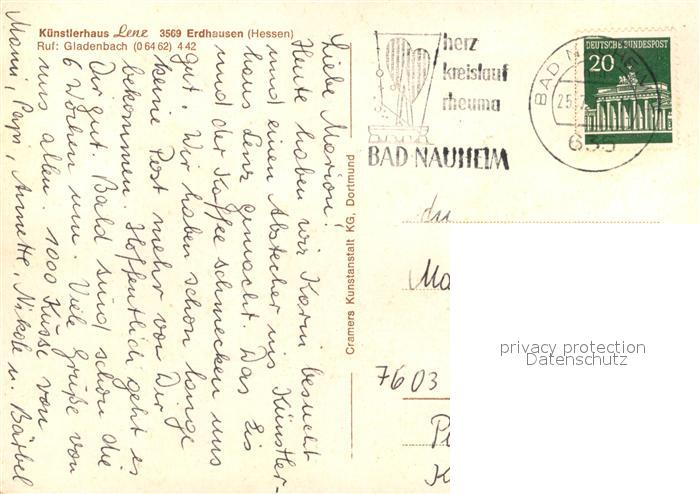 Künstlerhaus Lenz 3569 Erdhausen (Hessen)
Ruf: Gladenbach (0 64 62) 4 42
Liebe Marion!
Heute haben wir Karin besucht
und einen Abstecher ins Künstler-
haus Lenz gemacht. Das Eis
und der Kaffee schmecken uns
gut. Wir haben schon lange
keine Post mehr von Dir
bekommen. Hoffentlich geht es
Dir gut. Bald sind schon die
6 Wochen um. Viele Grüße von
uns allen. 1000 Küsse von
Mami, Papi, Annette, Nikole u. Bärbel
Cramers Kunstanstalt KG, Dortmund
herz
kreislauf
rheuma
BAD NAUHEIM
BAD
25.
635
DEUTSCHE BUNDESPOST
20
Ma
7603
privacy protection
Datenschutz